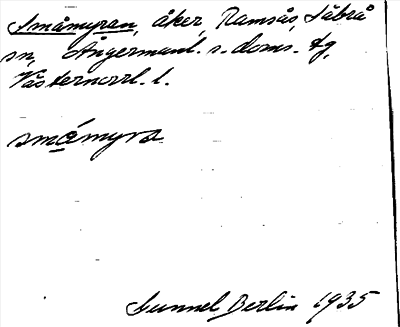 Småmyran, åker, Ramsås, Säbrå
sn, Ångermanl. s. doms. tg,
Västernorrl. l.
småmyra
Gunnel Berlin 1935